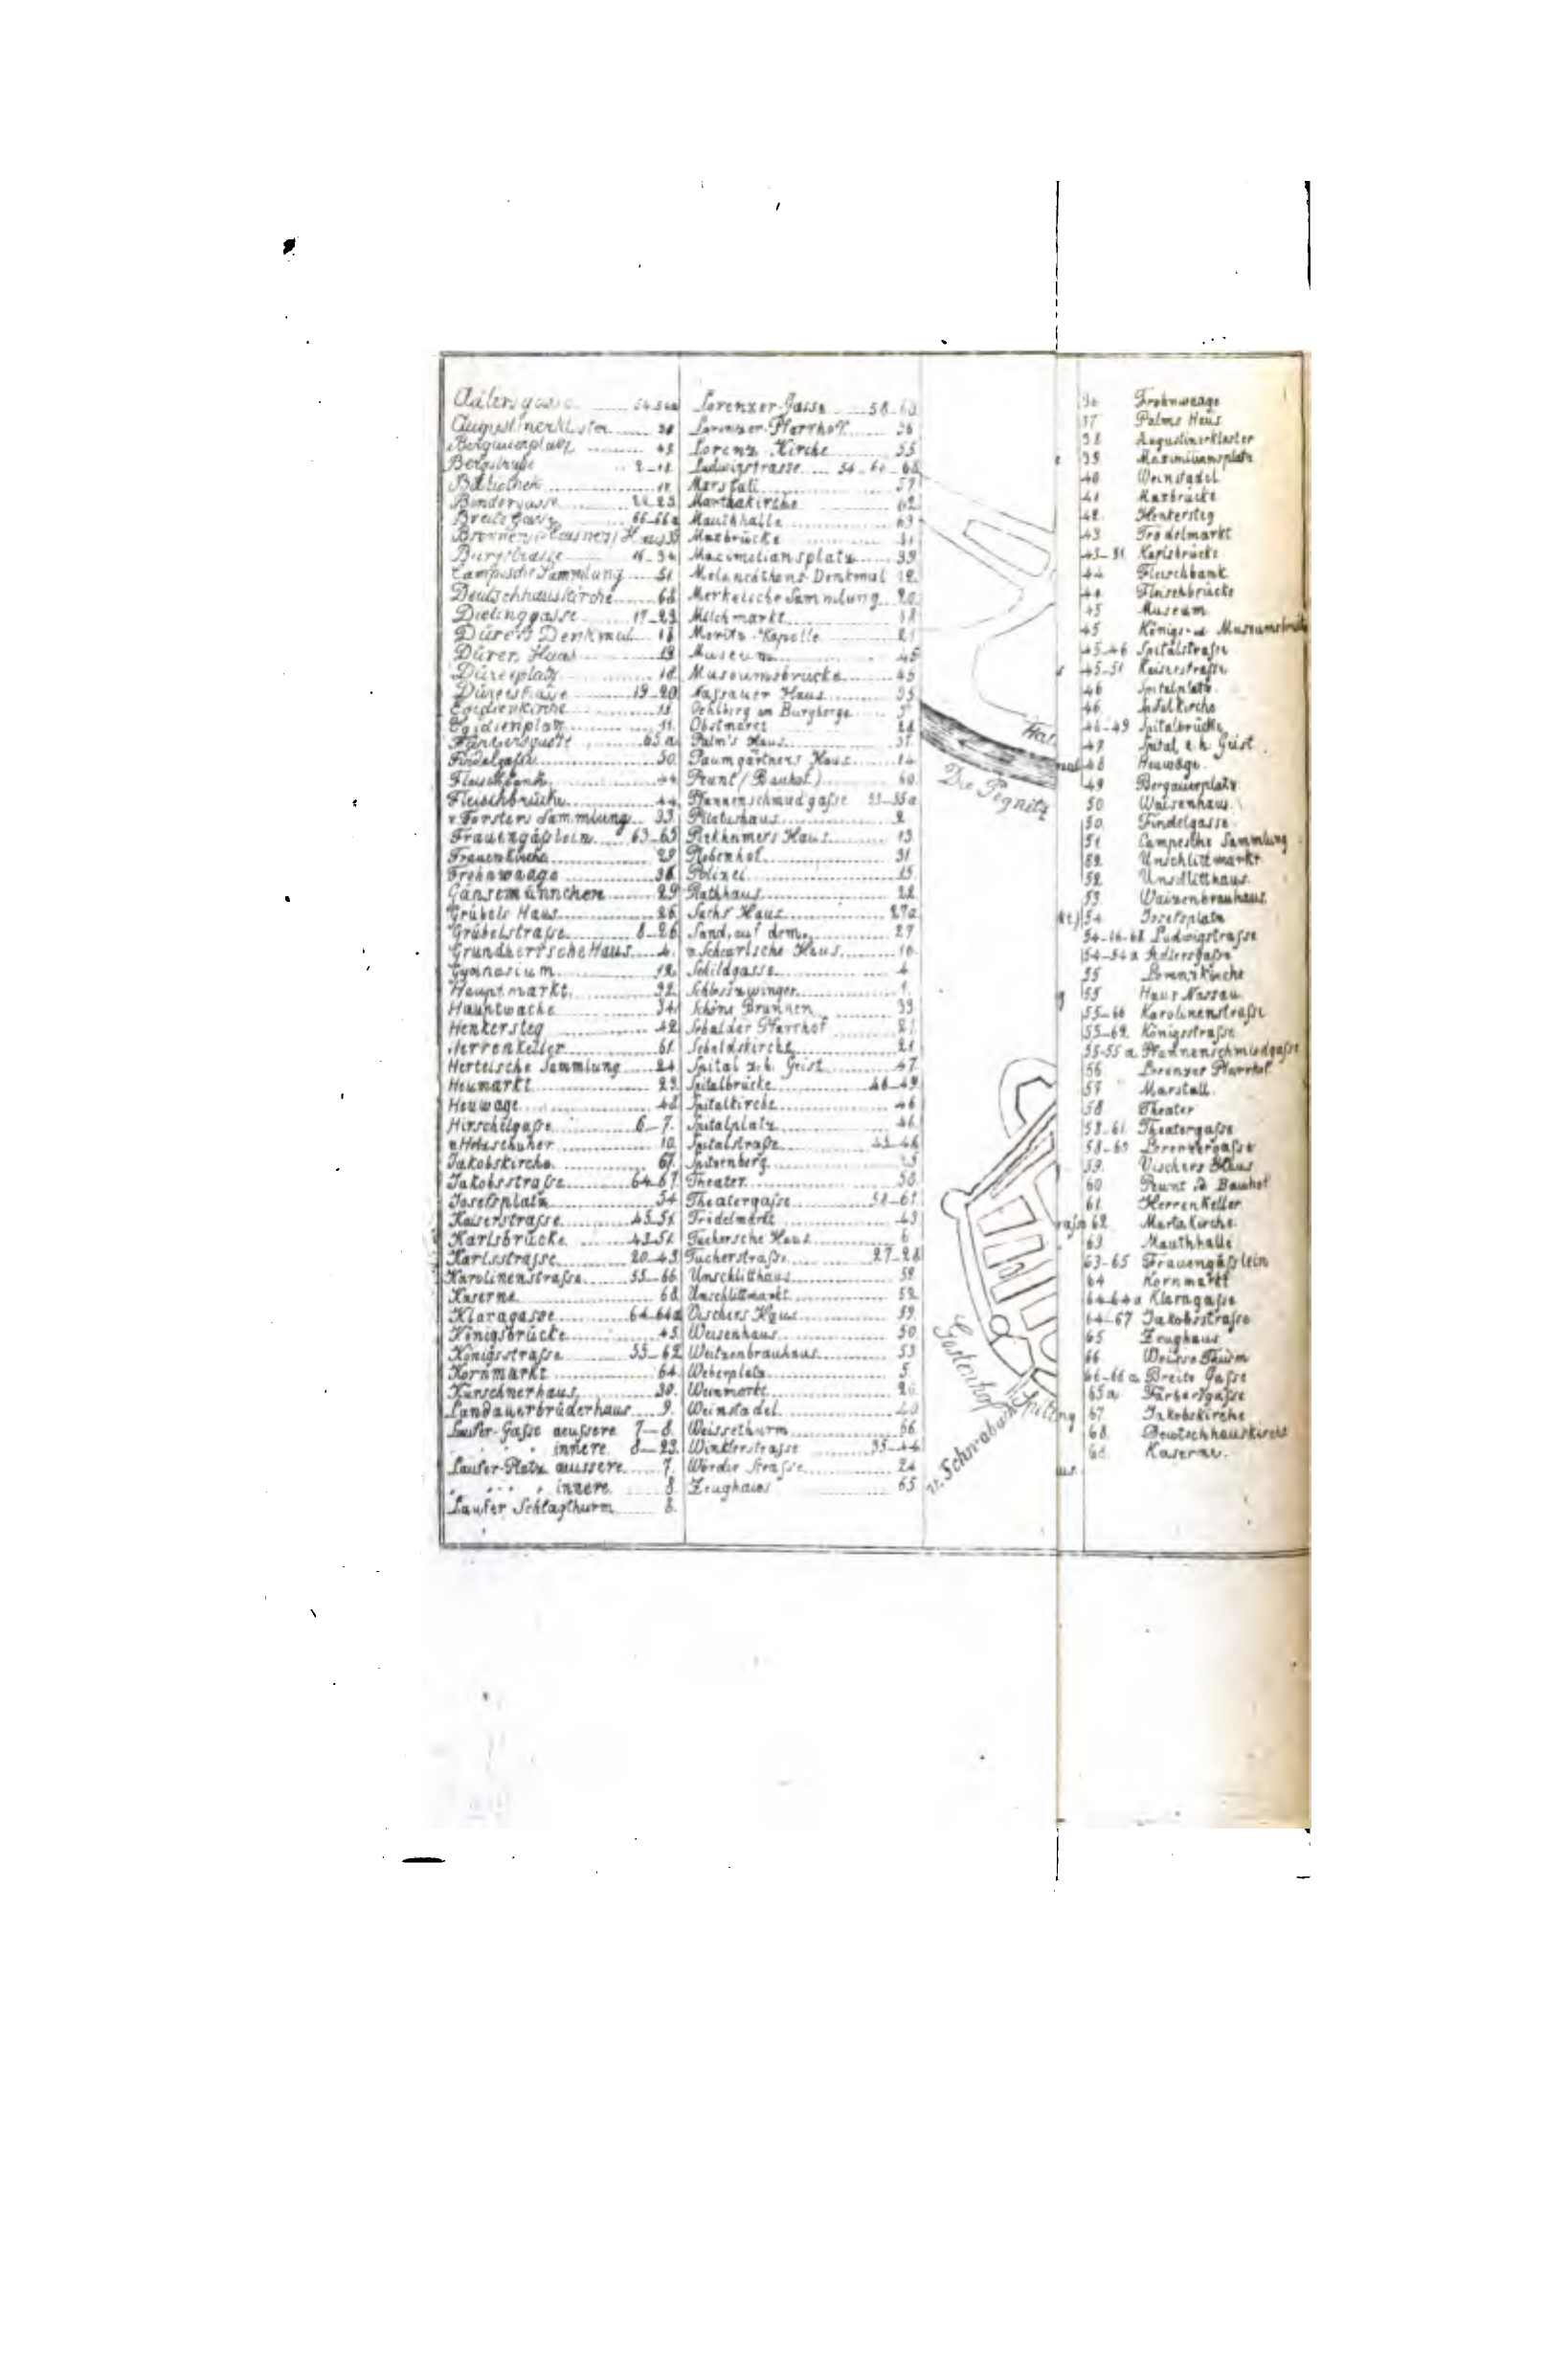 Adlersgasse ...... 54-54a
Augustinerkloster ...... 38
Bergauerplatz ...... 49
Bergstraße .. 2-18
Bibliothek ......
Bindergasse ...... 22-23
Breite Gasse 66-66a
Haus 35
Burgstrasse ......
Campesche Sammlung ...... 51.
Deutschhauskirche ...... 68
Dielinggasse ...... 17-23
Dürers Denkmal ... 18
Dürers Haus ...... 19
Dürerplatz ...... 18
Dürerstrasse ...... 19-20
Egidienkirche ...... 11
Egidienplatz ...... 11.
Färbersgasse ...... 65a
Findelgasse ...... 50.
Fleischbank ...... 44
Fleischbrücke ...... 44
v. Forsters Sammlung .. 33.
Frauengäßlein ..... 63-65
Frauenkirche ...... 29
Frohnwaage ...... 36
Gänsemännchen ...... 29
Grübels Haus ...... 26.
Grübelstraße ...... 8-26
Grundherrsche Haus ..... 4.
Gymnasium ...... 12.
Hauptmarkt ...... 32.
Hauptwache ...... 34
Henkersteg ...... 42
Herrenkeller ...... 61.
Hertelsche Sammlung ...... 24
Heumarkt ...... 23.
Heuwage ...... 48
Hirschelgaße ...... 6-7.
v. Holzschuher ...... 10.
Jakobskirche ...... 67.
Jakobsstraße ...... 64-67.
Josefsplatz ...... 54
Kaiserstraße ...... 45-51.
Karlsbrücke ...... 43-51.
Karlsstrasse ...... 20-43.
Karolinenstraße ...... 55-66
Kaserne ...... 68
Klaragasse ...... 64-64a
Königsbrücke ...... 45.
Königsstraße ...... 55-62
Kornmarkt ...... 64.
Kürschnerhaus ...... 30.
Landauerbrüderhaus ...... 9.
Laufer-Gaße aeussere 7-8.
" " innere. 8-23.
Laufer-Platz äussere ..... 7.
" " innere ...... 8.
Laufer Schlagthurm ...... 8.
Lorenzer-Gasse .... 58-63
Lorenzer-Pfarrhof ...... 56
Lorenz-Kirche ...... 55
Ludwigstrasse ..... 54-66-68
Marstall ...... 57
Marthakirche ...... 62
Mauthhalle ...... 63
Maxbrücke ...... 41
Maximiliansplatz ..... 39
Melanchthons-Denkmal 12.
Merkelsche Sammlung ..
Milchmarkt ...... 18
Moritz-Kapelle ...... 21
Museum ...... 45
Museumsbrücke ...... 45
Nassauer Haus ...... 55
Oehlberg am Burgberge
Obstmarkt
Palm's Haus ...... 37.
Paumgärtners Haus ..... 14
Peunt (Bauhof) ...... 60
Pfannenschmiedgaße 55-55a
Pilatushaus ...... 2
Pirkhamers Haus ...... 13
Plobenhof ...... 31
Polizei ...... 15
Rathhaus ...... 22
Sachs Haus ...... 27a
Sand, auf dem ...... 27
v. Scheurlsche Haus ...... 16.
Schildgasse ...... 4
Schlosszwinger ...... 1.
Schöne Brunnen ...... 33
Sebalder Pfarrhof ...... 21
Sebaldskirche ...... 21
Spital z. h. Geist ...... 47.
Spitalbrücke ...... 46-49
Spitalkirche ...... 46
Spitalplatz ...... 46.
Spitalstraße ...... 45-46
Spitzenberg ...... 25
Theater ...... 58.
Theatergaße ...... 58-61.
Trödelmarkt ...... 43
Tuchersche Haus ...... 6
Tucherstraße ...... 27-28
Unschlitthaus ...... 52
Unschlittmarkt ...... 52
Vischers Haus ...... 59.
Waisenhaus ...... 50.
Weitzenbrauhaus ...... 53
Weberplatz ...... 5
Weinmarkt ...... 20
Weinstadel ...... 40
Weissethurm ...... 66
Winklerstrasse ...... 35-44
Wörder Straße ...... 24
Zeughaus ...... 65.
Die Pegnitz
Gostenhof
v. Schwabach
Spitt
ng
36 Frohnwaage
37 Palms Haus
38 Augustinerkloster
39 Maximiliansplatz
40 Weinstadel
41 Maxbrücke
42 Henkersteg
43 Trödelmarkt
43-51 Karlsbrücke
44 Fleischbank
44 Fleischbrücke
45 Museum
45 Königs- u. Museumsbrücke
45-46 Spitalstraße
45-51 Kaiserstraße
46 Spitalplatz
46. Spitalkirche
46-49 Spitalbrücke
47 Spital z. h. Geist
48 Heuwage.
49 Bergauerplatz
50 Waisenhaus
50. Findelgasse.
51 Campesche Sammlung
52 Unschlittmarkt
52 Unschlitthaus.
53 Waizenbrauhaus
54 Josefsplatz
54-66-68 Ludwigstrasse
54-54 a Adlersgaße
55 Lorenzkirche
55 Haus Nassau
55-66 Karolinenstraße
55-62. Königsstraße.
55-55 a Pfannenschmiedgaße
56 Lorenzer Pfarrhof
57 Marstall.
58 Theater
58-61 Theatergaße
58-63 Lorenzergaße
59. Vischers Haus
60 Peunt od Bauhof
61. Herrenkeller
62. Marta Kirche
63 Mauthhalle
63-65 Frauengäßlein
64 Kornmarkt
64-64 a Klaragaße
64-67 Jakobsstraße
65 Zeughaus
66 Weisse Thurm
66-66 a Breite Gaße
65 a Färbersgaße
67 Jakobskirche
68 Deutschhauskirche
68 Kaserne.